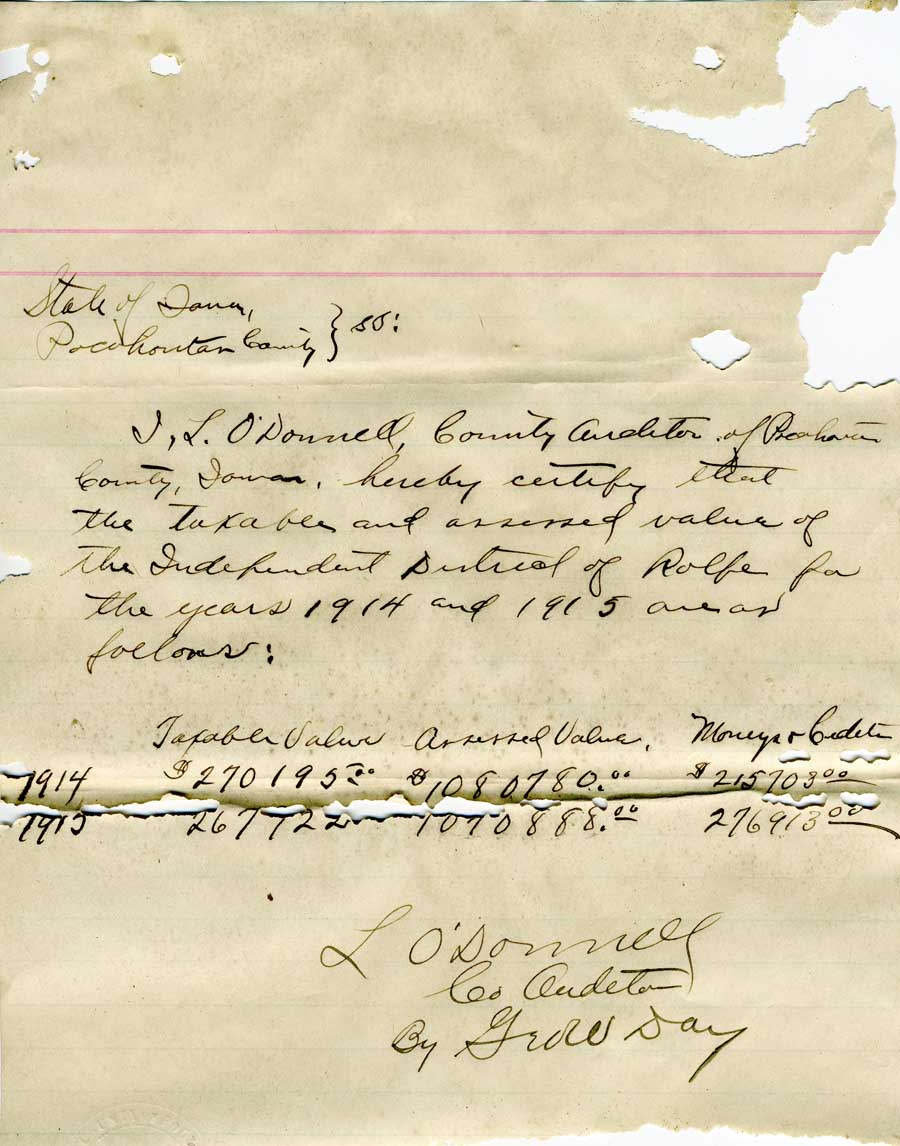 State of Iowa,
Pocahontas County } SS:
I, L. O'Donnell, County Auditor of Pocahontas
County, Iowa, hereby certify that
the taxable and assessed value of
the Independent District of Rolfe for
the years 1914 and 1915 are as
follows:
Taxable Value Assessed Value. Moneys & Credits
1914 $270195.00 $1080780.00 $215703.00
1915 267722 1070888.00 276913.00
L O'Donnell
Co Auditor
By Geo W Day